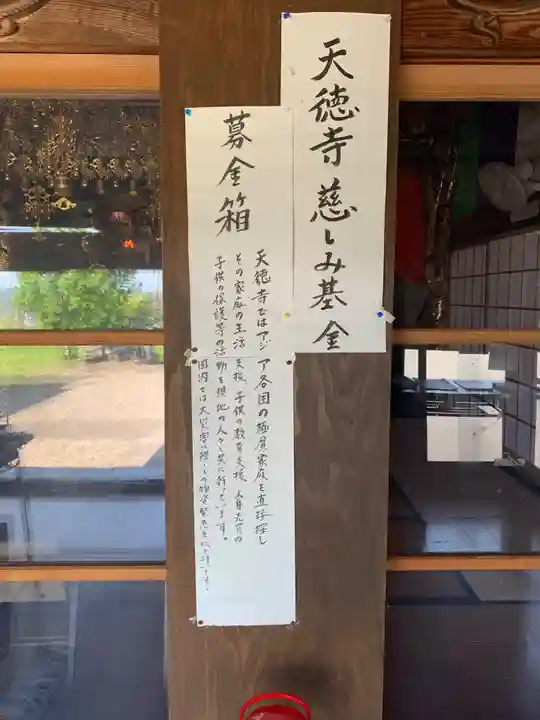 天徳寺慈しみ基金
募金箱
天徳寺ではアジア各国の極貧家庭を直接探し
その家庭の生活支援、子供の教育支援、人身売買の
子供の保護等の活動を現地の人々と共に行っています。
国内では大災害に際しての物資緊急